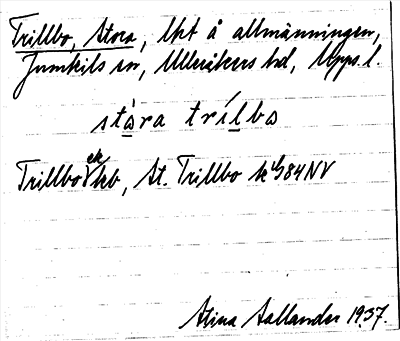 Trillbo, Stora, lht å allmänningen,
Jumkils sn, Ulleråkers hd, Upps. l.
stàra trílbo
Trillbo ek hb, St. Trillbo k 84NV
Stina Sallander 1937.